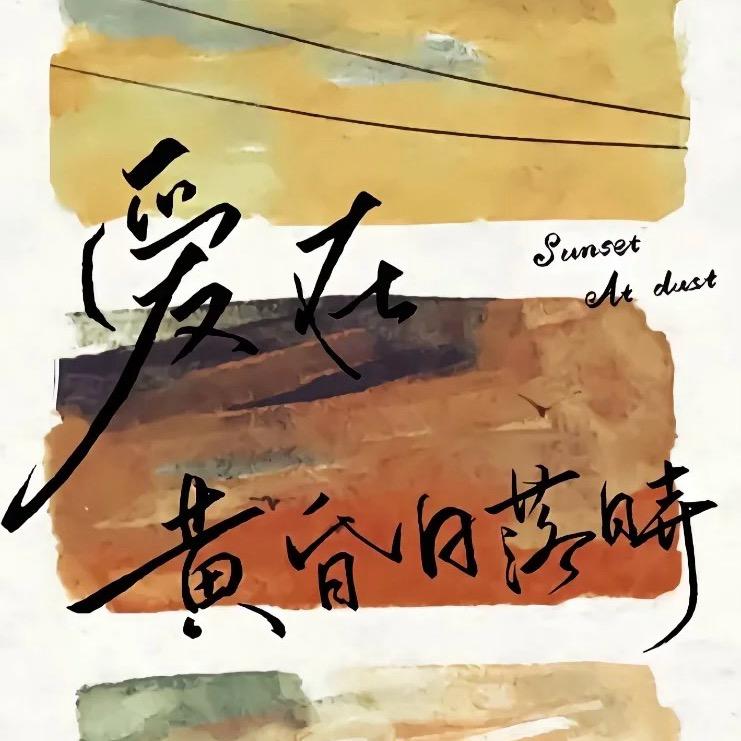 爱在
Sunset
At dust
黄昏日落時